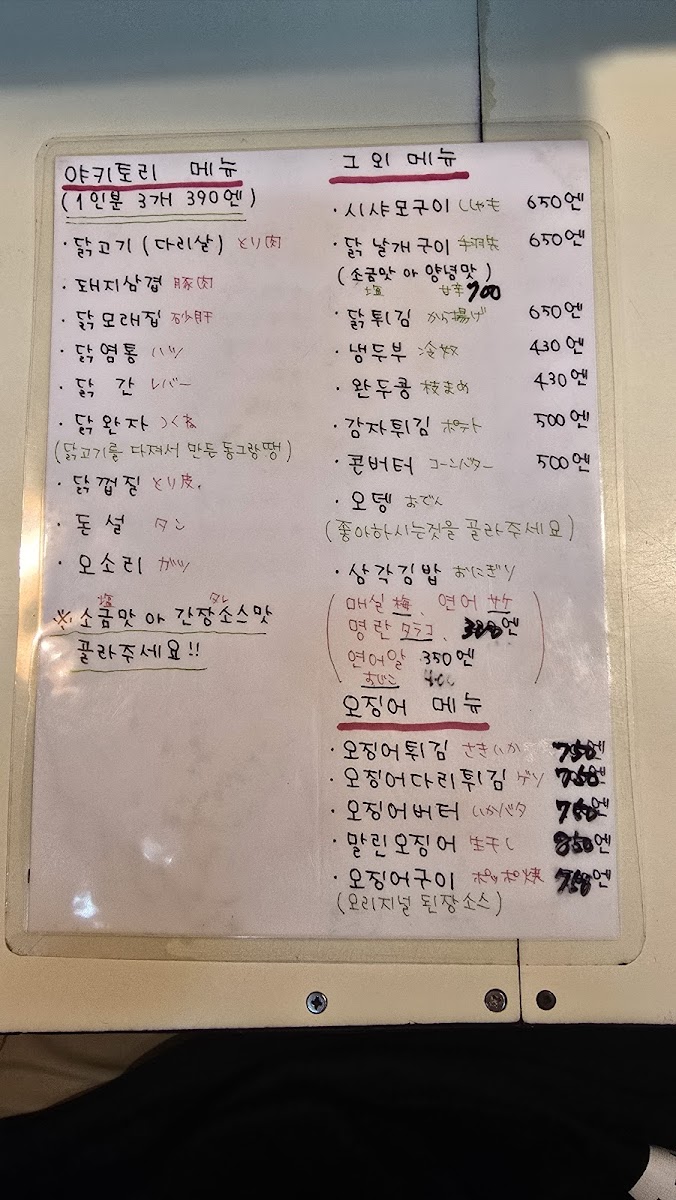 야키토리 메뉴
(1인분 3개 390엔)
· 닭고기 (다리살) とり肉
· 돼지삼겹 豚肉
· 닭모래집 砂肝
· 닭염통 ハツ
· 닭 간 レバー
· 닭완자 つくね
(닭고기를 다져서 만든 동그랑땡)
· 닭껍질 とり皮
· 돈설 タン
· 오소리 ガツ
塩 タレ
※ 소금맛 아 간장소스맛
골라주세요!!
그 외 메뉴
· 시샤모구이 ししゃも 650엔
· 닭 날개구이 手羽先 650엔
(소금맛 아 양념맛)
塩 甘辛 700
· 닭튀김 から揚げ 650엔
· 냉두부 冷奴 430엔
· 완두콩 枝まめ 430엔
· 감자튀김 ポテト 500엔
· 콘버터 コーンバター 500엔
· 오뎅 おでん
(좋아하시는것을 골라주세요)
· 삼각김밥 おにぎり
매실 梅、연어 サケ
명란 タラコ、 엔
연어알 350엔
400
오징어 메뉴
· 오징어튀김 さきいか 750엔
· 오징어다리튀김 ゲソ 엔
· 오징어버터 いかバタ 엔
· 말린오징어 生干し 850엔
· 오징어구이 ポッポ焼 엔
(오리지널 된장소스)